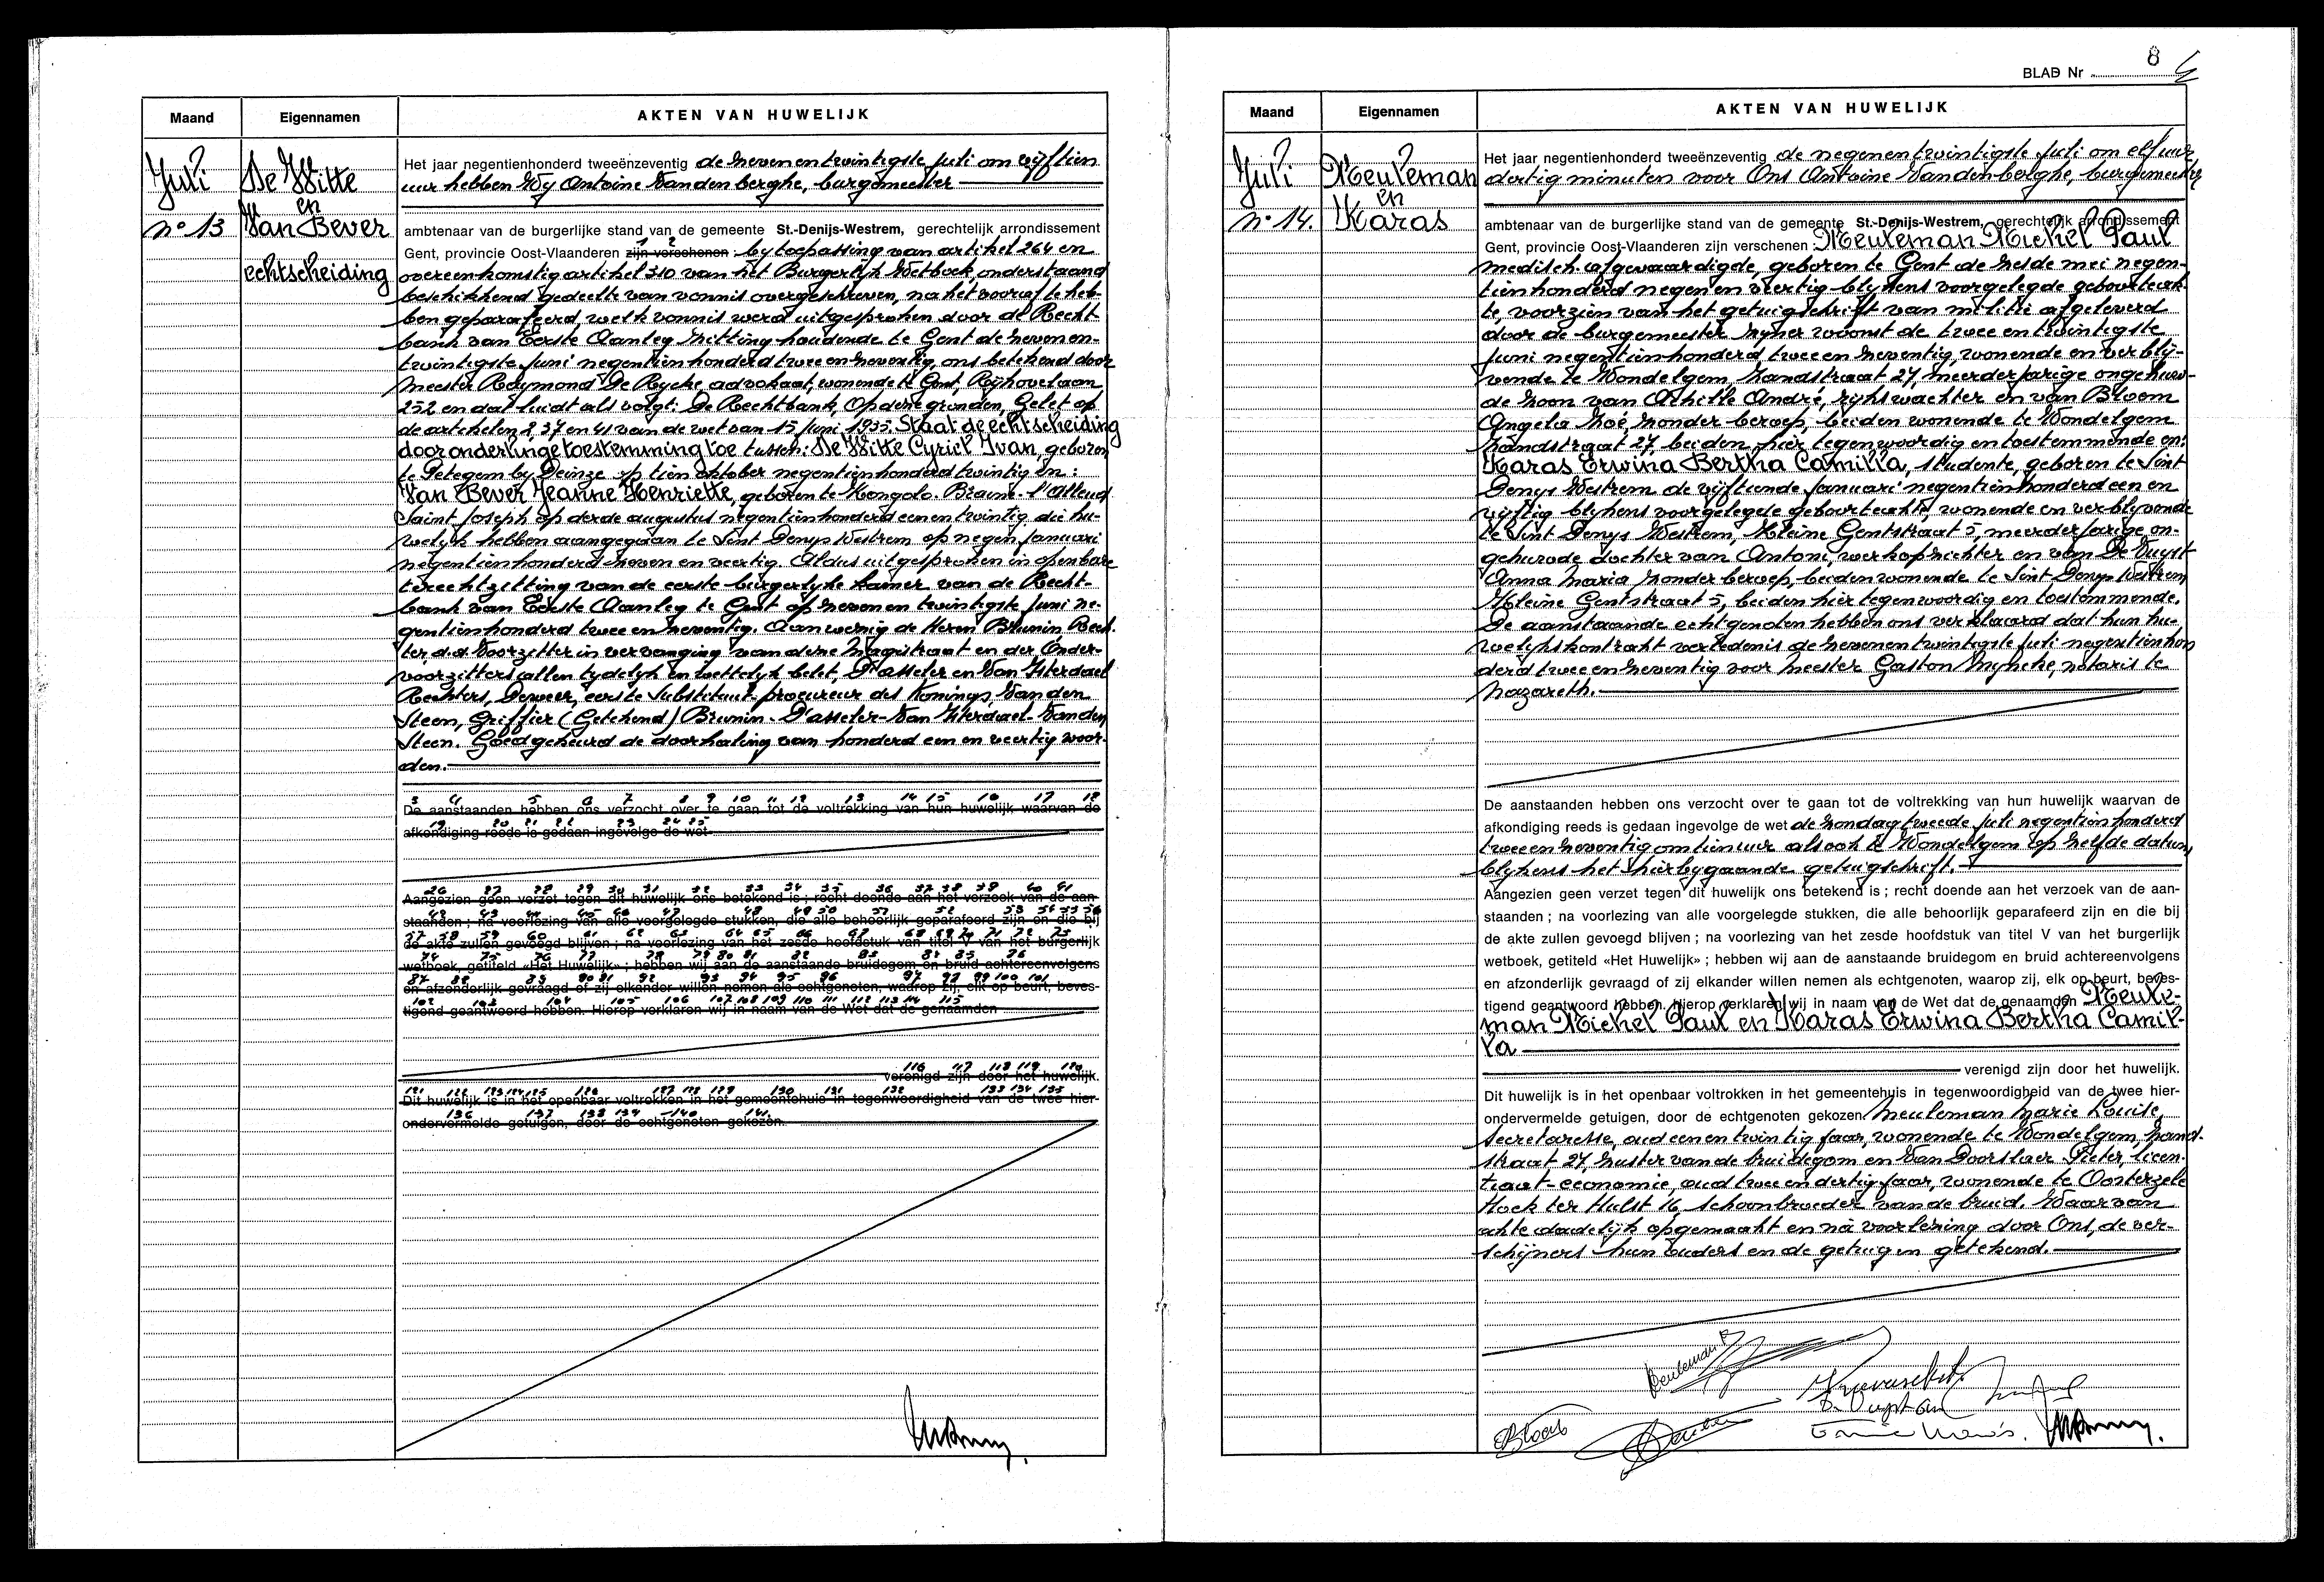 Maand Eigennamen AKTEN VAN HUWELIJK
Juli De Witte
en
n° 13 Van Bever
echtscheiding
Het jaar negentienhonderd tweeënzeventig de zevenentwintigste Juli om vijftien
uur hebben Wy Antoine Vandenberghe, burgemeester
ambtenaar van de burgerlijke stand van de gemeente St.-Denijs-Westrem, gerechtelijk arrondissement
Gent, provincie Oost-Vlaanderen zijn verschenen : by toepassing van artikel 264 en
overeenkomstig artikel 310 van het Burgerlyk Wetboek, onderstaand
beschikkend gedeelte van vonnis overgeschreven, na het vooraf te heb-
ben geparafeerd, welk vonnis werd uitgesproken door de Recht
bank van Eerste Aanleg zitting houdende te Gent de zevenen-
twintigste Juni negentienhonderd tweeenzeventig, ons betekend door
Meester Raymond De Rycke, advokaat, wonende te Gent, Kyhovelaan
252 en dat luidt als volgt: De Rechtbank, Op deze gronden, Gelet op
de artekelen 2, 37 en 41 van de wet van 15 Juni 1935. Staat de echtscheiding
door onderlinge toestemming toe tussch: De Witte Cyriel Ivan, geboren
te Petegem by Deinze op tien oktober negentienhonderd twintig en :
Van Bever Jeanne Henriette, geboren te Mongolo. Braine-l'Alleud
Saint Joseph op derde augustus negentienhonderd eenentwintig die hu-
welyk hebben aangegaan te Sint Denys Westrem op negen Januari
negentienhonderd zevenenveertig. Aldus uitgesproken in openbare
terechtzitting van de eerste burgerlyke kamer van de Recht-
bank van Eerste Aanleg te Gent op zevenentwintigste Juni ne-
gentienhonderd tweeenzeventig. Aanwezig de Heren Brunin Rech-
ter, d.d. Voorzitter in vervanging van deze Magistraat en der Onder-
voorzitters allen tydelyk en wettelyk belet, D'asseler en Van Isterdael
Rechters, Deweer, eerste Substituut-procureur des Konings, Vanden
Steen, Griffier (Getekend) Brunin-D'asseler-Van Isterdael-Vanden
Steen. Goedgekeurd de doorhaling van honderd een en veertig woor-
den.
De aanstaanden hebben ons verzocht over te gaan tot de voltrekking van hun huwelijk waarvan de
afkondiging reeds is gedaan ingevolge de wet
Aangezien geen verzet tegen dit huwelijk ons betekend is ; recht doende aan het verzoek van de aan-
staanden ; na voorlezing van alle voorgelegde stukken, die alle behoorlijk geparafeerd zijn en die bij
de akte zullen gevoegd blijven ; na voorlezing van het zesde hoofdstuk van titel V van het burgerlijk
wetboek, getiteld «Het Huwelijk» ; hebben wij aan de aanstaande bruidegom en bruid achtereenvolgens
en afzonderlijk gevraagd of zij elkander willen nemen als echtgenoten, waarop zij, elk op beurt, beves-
tigend geantwoord hebben. Hierop verklaren wij in naam van de Wet dat de genaamden
verenigd zijn door het huwelijk.
Dit huwelijk is in het openbaar voltrokken in het gemeentehuis in tegenwoordigheid van de twee hier-
ondervermelde getuigen, door de echtgenoten gekozen.
8
BLAD Nr
Maand Eigennamen AKTEN VAN HUWELIJK
Juli Meuleman
en
n° 14. Karas
Het jaar negentienhonderd tweeënzeventig de negenentwintigste Juli om elf uur
dertig minuten voor Ons Antoine Vandenberghe, burgemeester
ambtenaar van de burgerlijke stand van de gemeente St.-Denijs-Westrem, gerechtelijk arrondissement
Gent, provincie Oost-Vlaanderen zijn verschenen : Meuleman Michel Paul
medisch afgevaardigde, geboren te Gent de zesde mei negen-
tienhonderd negenenveertig blykens voorgelegde geboorteak-
te, voorzien van het getuigschrift van militie afgeleverd
door de burgemeester zyner woonst de tweeentwintigste
Juni negentienhonderd tweeenzeventig, wonende en verbly-
vende te Wondelgem, Zandstraat 27, meerderjarige ongehuw-
de zoon van Achille André, rykswachter en van Bloem
Angela Zoé, zonder beroep, beiden wonende te Wondelgem
Zandstraat 27, beiden hier tegenwoordig en toestemmende en:
Karas Erwina Bertha Camilla, studente, geboren te Sint
Denys Westrem de vyftiende Januari negentienhonderd een en
vyftig blykens voorgelegde geboorteakte, wonende en verblyvende
te Sint Denys Westrem, Kleine Gentstraat 5, meerderjarige on-
gehuwde dochter van Antoni, werkopzichter en van De Vuyst
Anna Maria zonder beroep, beiden wonende te Sint Denys Westrem
Kleine Gentstraat 5, beiden hier tegenwoordig en toestemmende.
De aanstaande echtgenoten hebben ons verklaard dat hun hu-
welykskontrakt verleden is de zevenentwintigste Juli negentienhon
derd tweeenzeventig voor meester Gaston Ingheke, notaris te
Nazareth.
De aanstaanden hebben ons verzocht over te gaan tot de voltrekking van hun huwelijk waarvan de
afkondiging reeds is gedaan ingevolge de wet de zondag tweede Juli negentienhonderd
tweeenzeventig om tien uur alsook te Wondelgem op zelfde datum,
blykens het hierbygaande getuigschrift.
Aangezien geen verzet tegen dit huwelijk ons betekend is ; recht doende aan het verzoek van de aan-
staanden ; na voorlezing van alle voorgelegde stukken, die alle behoorlijk geparafeerd zijn en die bij
de akte zullen gevoegd blijven ; na voorlezing van het zesde hoofdstuk van titel V van het burgerlijk
wetboek, getiteld «Het Huwelijk» ; hebben wij aan de aanstaande bruidegom en bruid achtereenvolgens
en afzonderlijk gevraagd of zij elkander willen nemen als echtgenoten, waarop zij, elk op beurt, beves-
tigend geantwoord hebben. Hierop verklaren wij in naam van de Wet dat de genaamden Meule-
man Michel Paul en Karas Erwina Bertha Camil-
la
verenigd zijn door het huwelijk.
Dit huwelijk is in het openbaar voltrokken in het gemeentehuis in tegenwoordigheid van de twee hier-
ondervermelde getuigen, door de echtgenoten gekozen Meuleman Marie Louise,
secretaresse, oud eenentwintig jaar, wonende te Wondelgem, Zand-
straat 27, zuster van de bruidegom en Van Doorslaer Pieter, licen-
tiaat-economie, oud tweeendertig jaar, wonende te Oosterzele
Hoek ter Hulst 16, schoonbroeder van de bruid. Waarvan
akte dadelijk opgemaakt en na voorlezing door Ons, de ver-
schijners hun ouders en de getuigen getekend.
Meuleman
Bloem